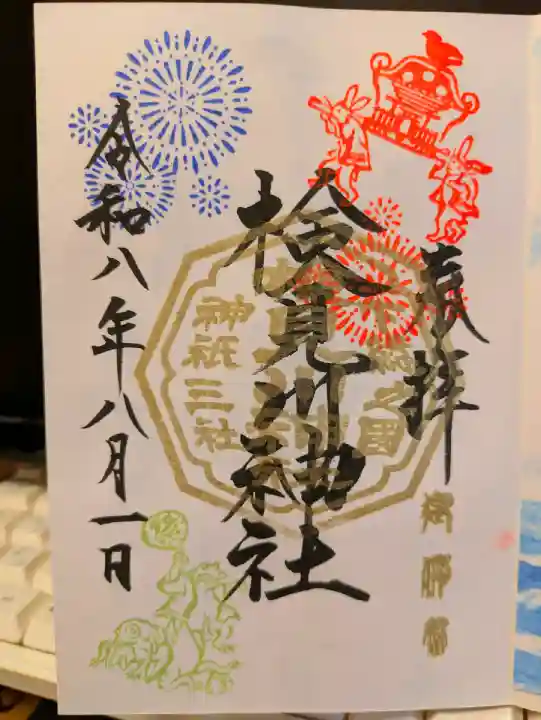 奉拝
検見川神社
神祇三社
令和八年八月一日